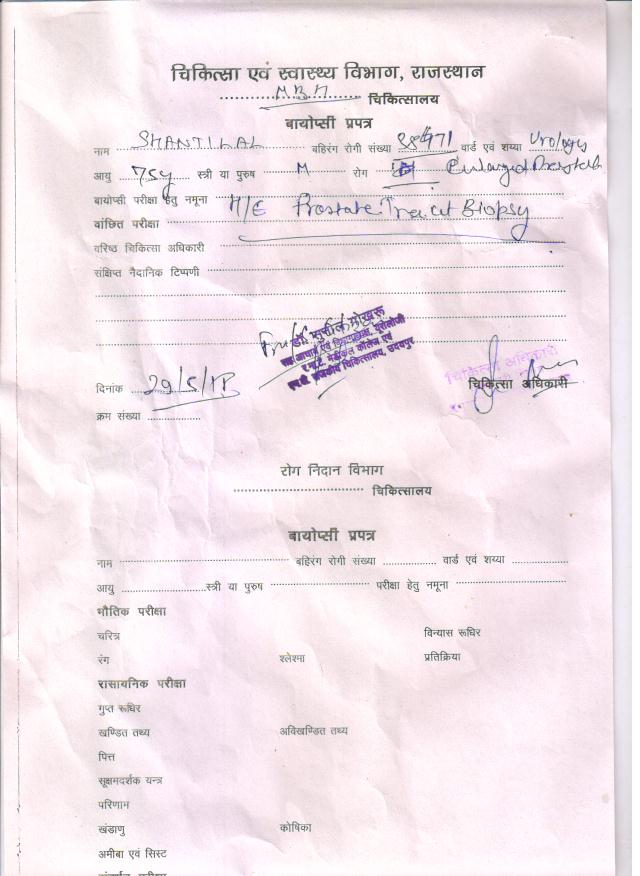 चिकित्सा एवं स्वास्थ्य विभाग, राजस्थान
MBH चिकित्सालय
बायोप्सी प्रपत्र
नाम SHANTILAL बहिरंग रोगी संख्या वार्ड एवं शय्या Urology
आयु 75y स्त्री या पुरुष M रोग Enlarged Prostate
बायोप्सी परीक्षा हेतु नमूना H/E Prostate Trucut Biopsy
वांछित परीक्षा
वरिष्ठ चिकित्सा अधिकारी
संक्षिप्त नैदानिक टिप्पणी
सह आचार्य एवं विभागाध्यक्ष, यूरोलोजी
चिकित्सालय, उदयपुर
चिकित्सा अधिकारी
दिनांक 29/5/18 चिकित्सा अधिकारी
क्रम संख्या
रोग निदान विभाग
चिकित्सालय
बायोप्सी प्रपत्र
नाम बहिरंग रोगी संख्या वार्ड एवं शय्या
आयु स्त्री या पुरुष परीक्षा हेतु नमूना
भौतिक परीक्षा
चरित्र विन्यास रूधिर
रंग श्लेश्मा प्रतिक्रिया
रासायनिक परीक्षा
गुप्त रूधिर
खण्डित तथ्य अविखण्डित तथ्य
पित्त
सूक्षमदर्शक यन्त्र
परिणाम
खंडाणु कोषिका
अमीबा एवं सिस्ट